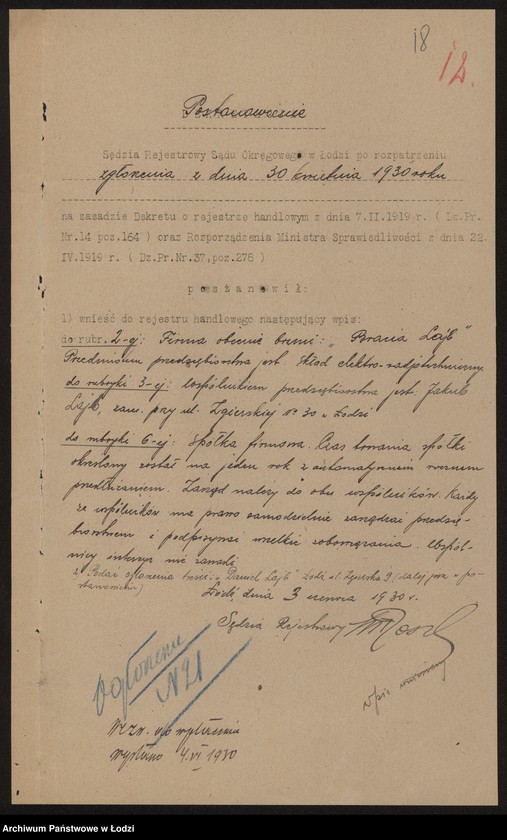 18
12.
Postanowienie
Sędzia Rejestrowy Sądu Okręgowego w Łodzi po rozpatrzeniu
zgłoszenia z dnia 30 kwietnia 1930 roku
na zasadzie Dekretu o rejestrze handlowym z dnia 7.II.1919 r. ( Dz.Pr.
Nr.14 poz.164 ) oraz Rozporządzenia Ministra Sprawiedliwości z dnia 22.
IV.1919 r. ( Dz.Pr.Nr.37,poz.276 )
p o s t a n o w i ł :
1) wnieść do rejestru handlowego następujący wpis:
do rubr. 2-ej: Firma obecnie brzmi: „Bracia Lajb"
Przedmiotem przedsiębiorstwa jest skład elektro-radjotechniczny
do rubryki 3-ej: wspólnikiem przedsiębiorstwa jest: Jakub
Lajb, zam. przy ul. Zgierskiej № 30 w Łodzi
do rubryki 6-ej: Spółka firmowa. Czas trwania spółki
określony został na jeden rok z automatycznem rocznem
przedłużaniem. Zarząd należy do obu wspólników. Każdy
ze wspólników ma prawo samodzielnie zarządzać przedsię-
biorstwem i podpisywać wszelkie zobowiązania. Wspól-
nicy intercyz nie zawarli
2) Podać ogłoszenia firmie: „Daniel Lajb" Łódź ul. Zgierska 9 (dalej jak w po-
stanowieniu)
Łódź, dnia 3 czerwca 1930 r.
Sędzia Rejestrowy
Ogłoszenie
№ 21
Wpis
wysłano 4.VI 1930
Archiwum Państwowe w Łodzi